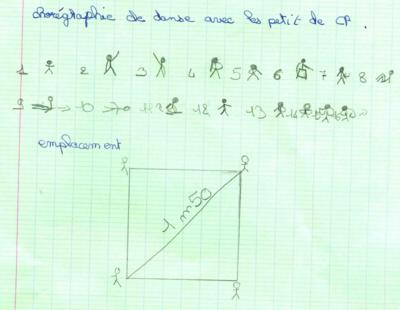 chorégraphie de danse avec les petit de CP.
1 2 3 4 5 6 7 8
9 10 11 12 13 14 15 16
emplacement
1 m 50